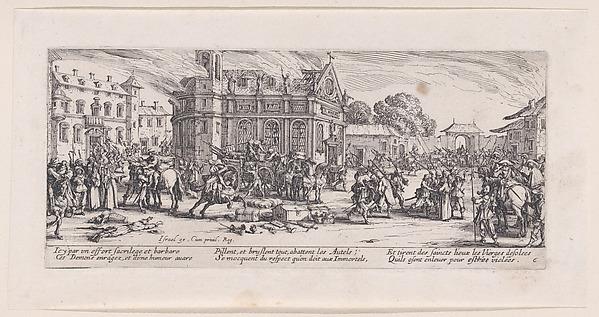 Israel ex. Cum priuil. Reg.
Icy par un effort sacrilege et barbare
Ces Demons enragez, et d'une humeur auare
Pillent, et bruslent tout, abattent les Autels ;
Se mocquent du respect qu'on doit aux Immortels,
Et tirent des saincts lieux les Vierges desolees
Quils osent enleuer pour estre violees. 6